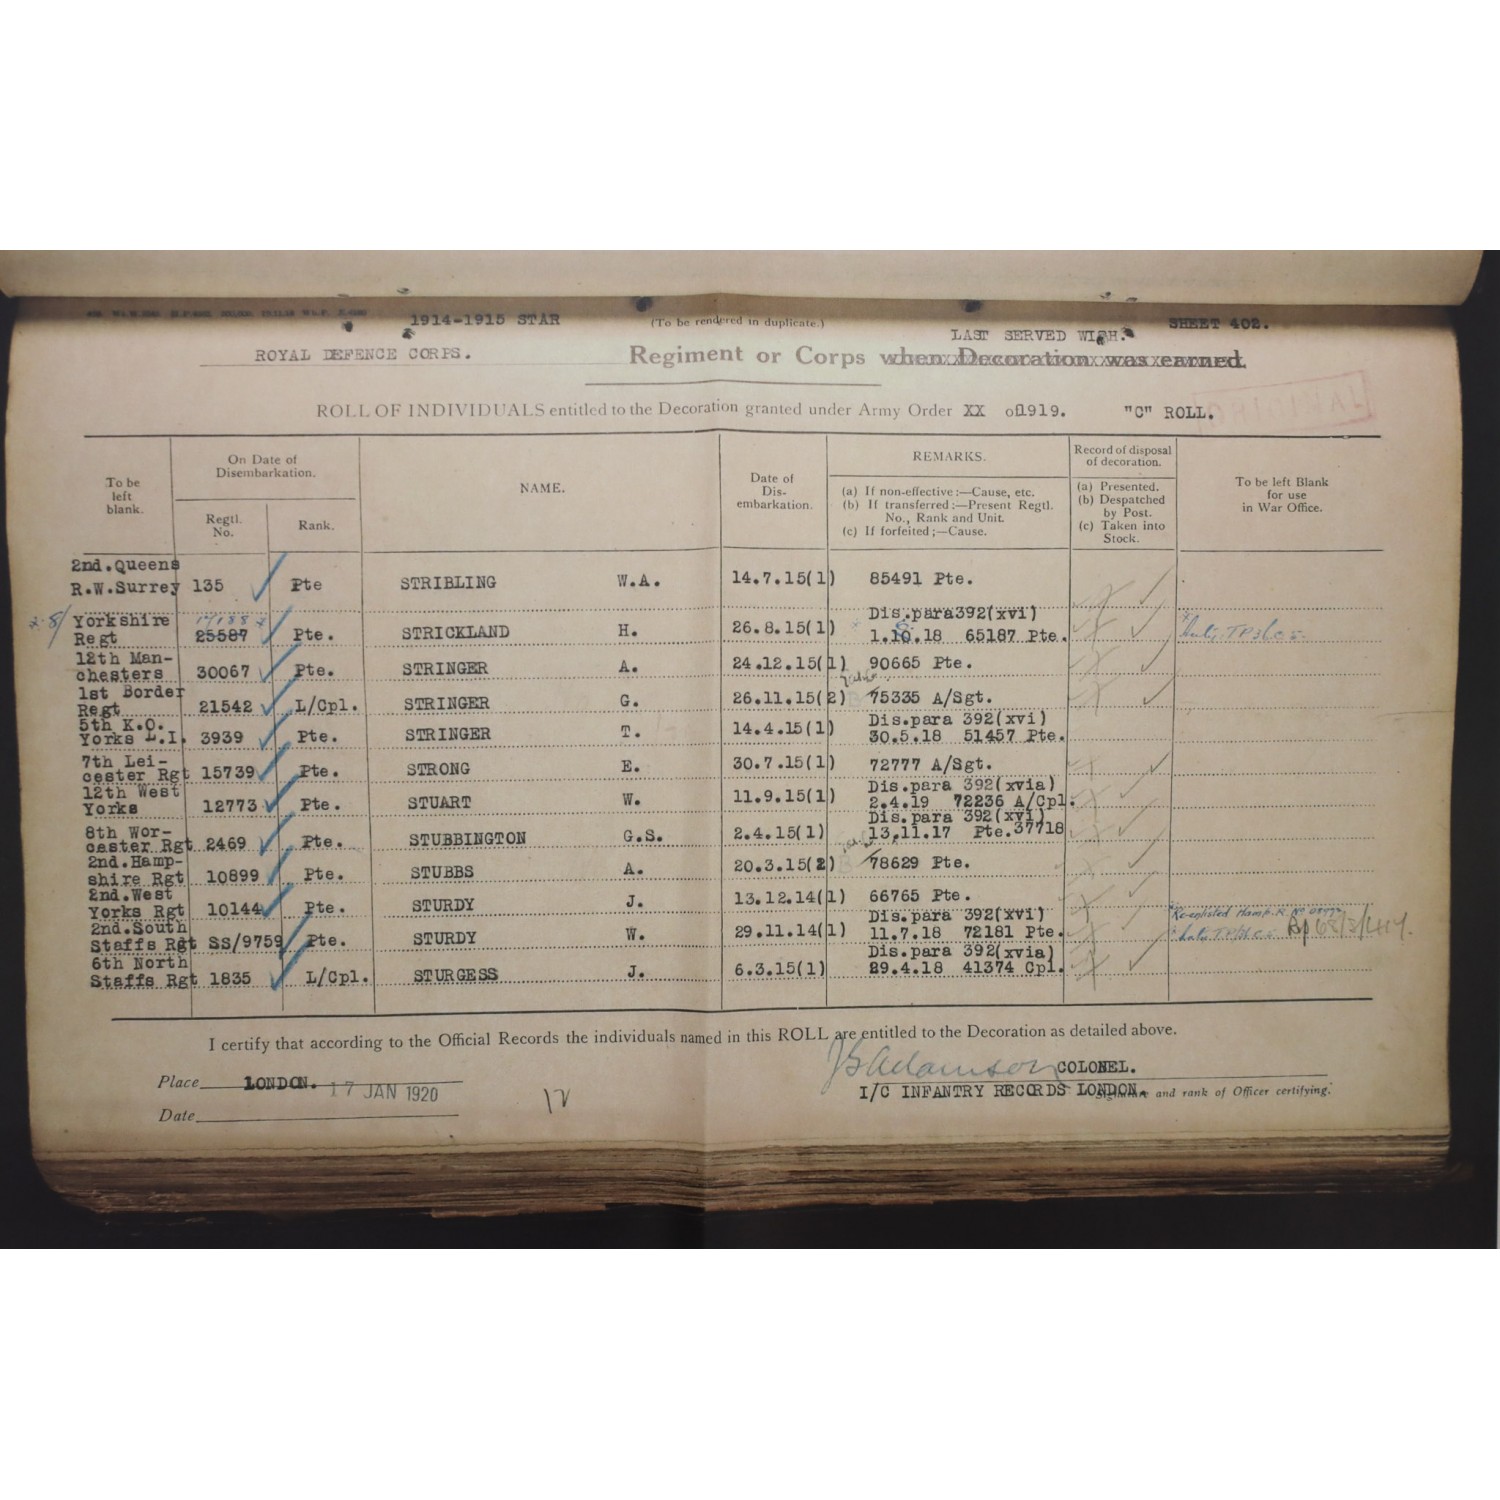 1914-1915 STAR
(To be rendered in duplicate.)
SHEET 402.
LAST SERVED WITH.
ROYAL DEFENCE CORPS.
Regiment or Corps when Decoration was earned
ORIGINAL
ROLL OF INDIVIDUALS entitled to the Decoration granted under Army Order XX of 1919. "C" ROLL.
To be left blank.
On Date of Disembarkation.
Regtl. No.
Rank.
NAME.
Date of Dis-embarkation.
REMARKS.
(a) If non-effective:—Cause, etc.
(b) If transferred:—Present Regtl. No., Rank and Unit.
(c) If forfeited;—Cause.
Record of disposal of decoration.
(a) Presented.
(b) Despatched by Post.
(c) Taken into Stock.
To be left Blank for use in War Office.
2nd.Queens
R.W.Surrey 135 Pte STRIBLING W.A. 14.7.15(1) 85491 Pte.
Yorkshire Dis.para392(xvi)
Regt 25587 Pte. STRICKLAND H. 26.8.15(1) 1.10.18 65187 Pte.
12th Man-
chesters 30067 Pte. STRINGER A. 24.12.15(1) 90665 Pte.
1st Border
Regt 21542 L/Cpl. STRINGER G. 26.11.15(2) 75335 A/Sgt.
5th K.O. Dis.para 392(xvi)
Yorks L.I. 3939 Pte. STRINGER T. 14.4.15(1) 30.5.18 51457 Pte.
7th Lei-
cester Rgt 15739 Pte. STRONG E. 30.7.15(1) 72777 A/Sgt.
12th West Dis.para 392(xvia)
Yorks 12773 Pte. STUART W. 11.9.15(1) 2.4.19 72236 A/Cpl.
8th Wor- Dis.para 392(xvi)
cester Rgt 2469 Pte. STUBBINGTON G.S. 2.4.15(1) 13.11.17 Pte.37718
2nd.Hamp-
shire Rgt 10899 Pte. STUBBS A. 20.3.15(2) 78629 Pte.
2nd.West
Yorks Rgt 10144 Pte. STURDY J. 13.12.14(1) 66765 Pte.
2nd.South Dis.para 392(xvi) Re-enlisted Hamp.R. No
Staffs Rgt SS/9759 Pte. STURDY W. 29.11.14(1) 11.7.18 72181 Pte.
6th North Dis.para 392(xvia)
Staffs Rgt 1835 L/Cpl. STURGESS J. 6.3.15(1) 29.4.18 41374 Cpl.
I certify that according to the Official Records the individuals named in this ROLL are entitled to the Decoration as detailed above.
Place LONDON.
17 JAN 1920
Date
12
J G Adamson COLONEL.
I/C INFANTRY RECORDS LONDON.
Signature and rank of Officer certifying.